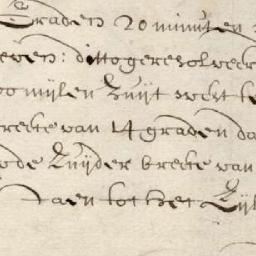 Graden 20 minuten
even: ditto geresolveer
mylen Zuijt west te
reette van 14 graden da
ode Zuijder breete van
aen tot het Zuij